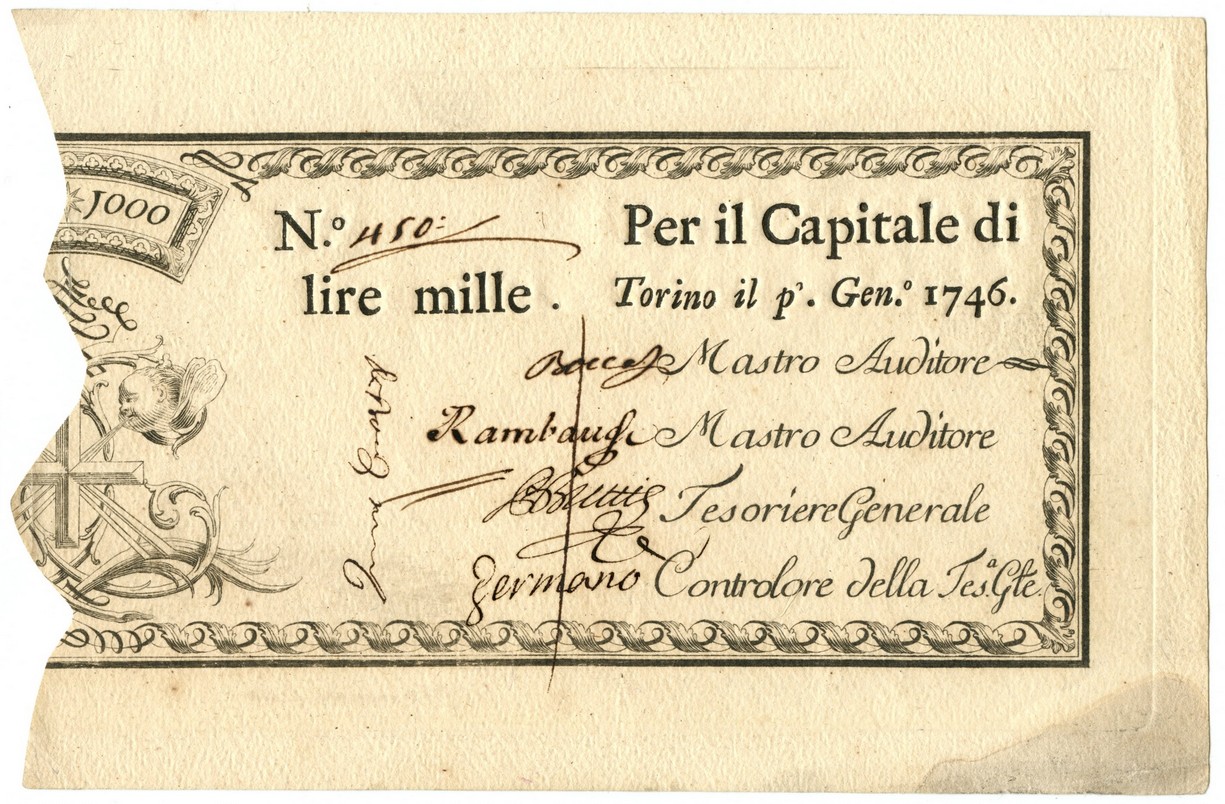 1000
N.º 450: Per il Capitale di
lire mille . Torino il p'. Gen.º 1746.
Mastro Auditore
Mastro Auditore
Tesoriere Generale
Germano Controlore della Tes.ª Gle.